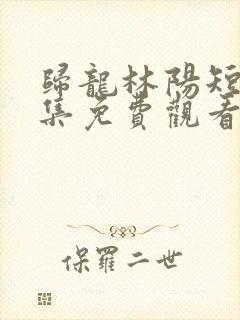 歸龍林陽短
集免費觀看
保羅二世